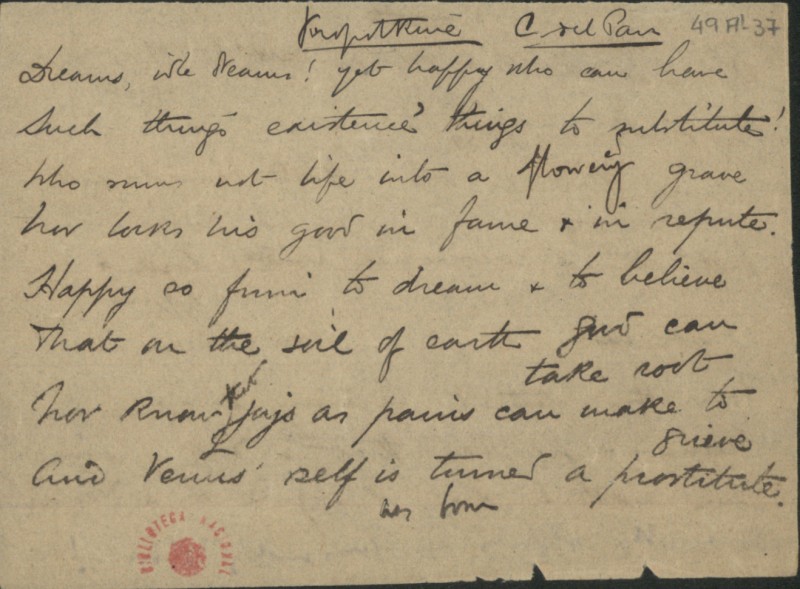 Kropotkine C del Pau 49A1-37
Dreams, idle dreams! yet happy who can have
Such things existence' things to substitute!
Who runs not life into a flowery grave
Nor locks his good in fame & in repute.
Happy so firm to dream & to believe
That on the soil of earth good can
take root
Nor know that joys as pains can make to
grieve
And Venus' self is turned a prostitute.
BIBLIOTECA NACIONAL